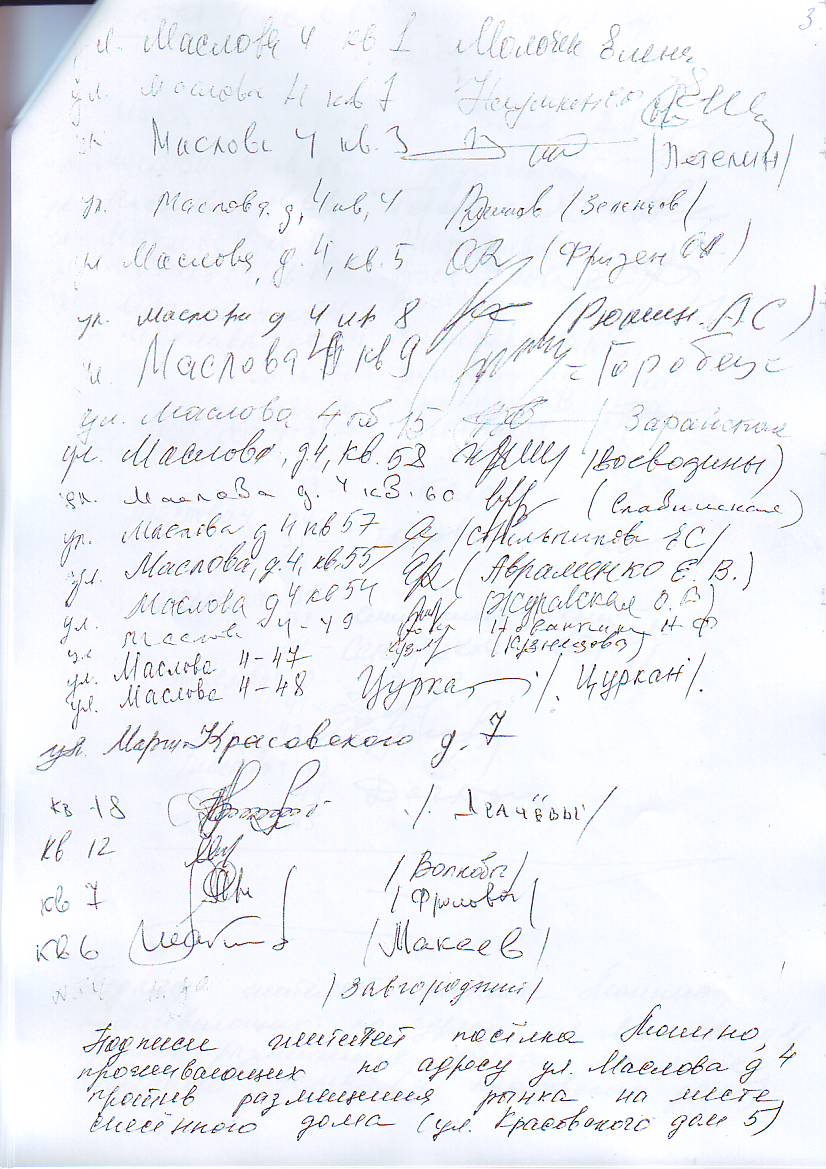 3
ул. Маслова 4 кв 1 Молочек Елена
ул. Маслова 4 кв 7
ул. Маслова 4 кв. 3 /Петелин/
ул. Маслова д, 4 кв, 4 /Зеленцов/
ул Маслова, д. 4, кв. 5 (Фризен ОА.)
ул. Маслова д 4 кв 8 (Рюмин. А.С)
ул. Маслова 4 кв 9 Горобец
ул. Маслова 4 кв 15 / Зарайская
ул. Маслова, д4, кв. 58 /Воеводины)
ул. Маслова д. 4 кв. 60 (Славинская)
ул. Маслова д 4 кв 57 ЕС/
ул. Маслова, д. 4, кв. 55 (Авраменко Е. В.)
ул. Маслова д 4 кв 54 (Журавская О. В)
ул Маслова 4-49
ул. Маслова 4-47 (Кузнецова)
ул. Маслова 4-48 Цуркан /. Цуркан/.
ул. Марш. Красовского д. 7
кв 18 /. Драчёвы/
кв 12 /Волковы/
кв 7 /Фроловы/
кв 6 /Макеев/
/Завгородний/
Подписи жителей посёлка Монино,
проживающих по адресу ул. Маслова д 4
против размещения рынка на месте
снесённого дома (ул. Красовского дом 5)